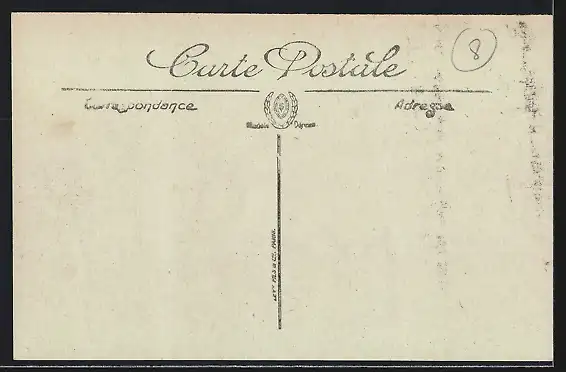 Carte Postale
8
Correspondance
Adresse
Modèle Déposé
LEVY FILS & Cie, PARIS